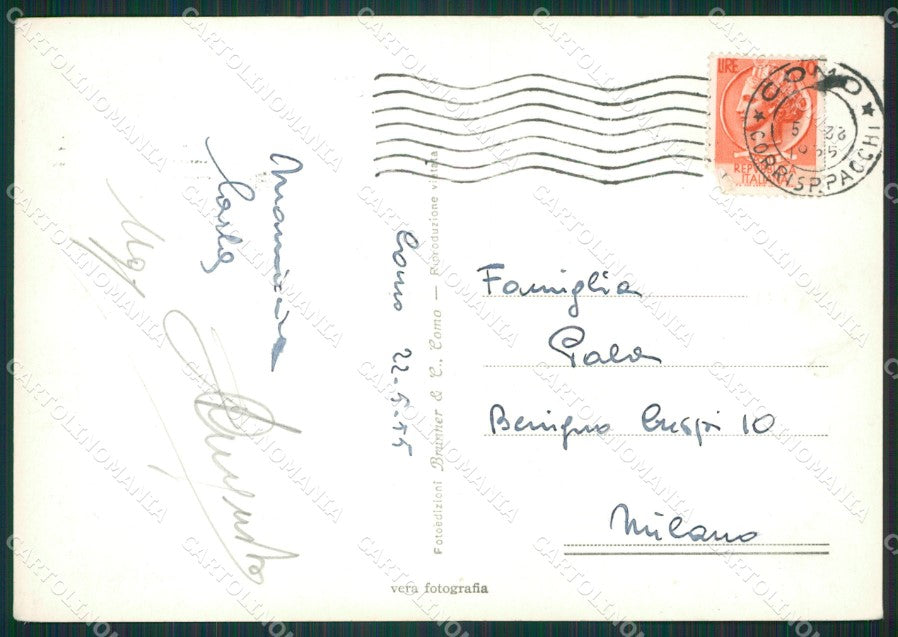 LIRE 10
REPUBBLICA
ITALIANA
COMO
CORRISP. PACCHI
22 5
1955
Como 22-5-55
Fotoedizioni Brunner & C. Como — Riproduzione vietata
Famiglia
Pala
Benigno Crespi 10
Milano
vera fotografia
CARTOLINOMANIA